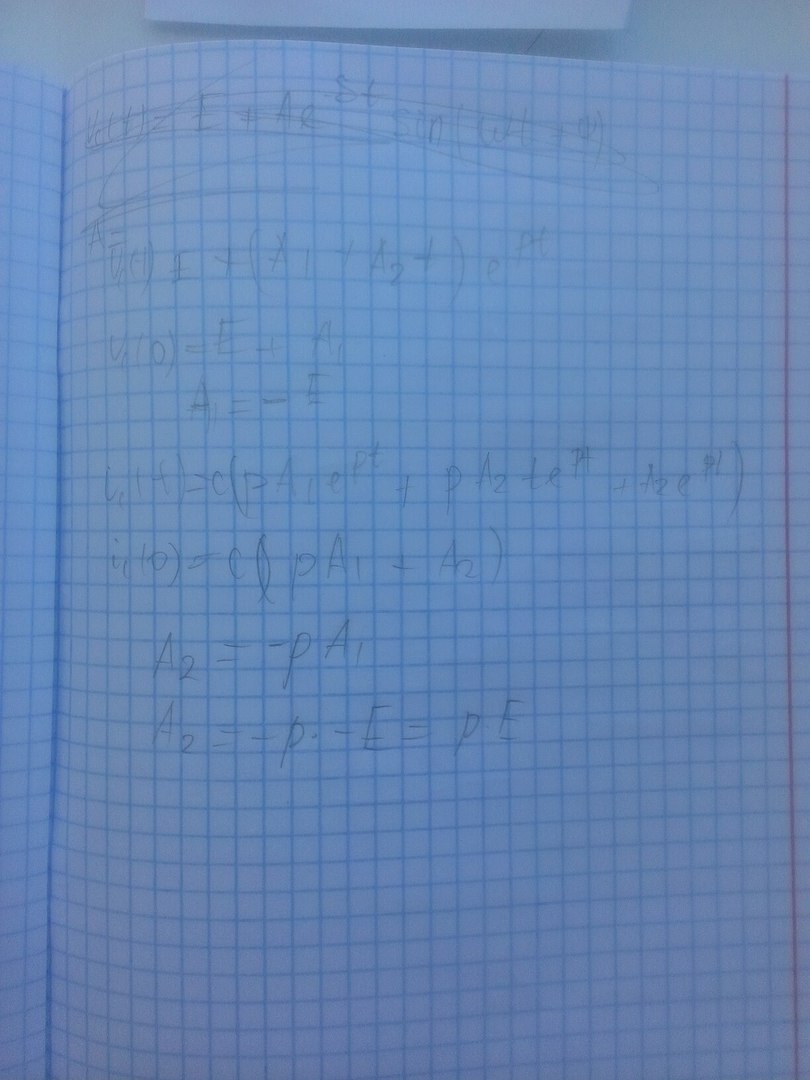 U₁(t) = E + Ae^δt sin(ωt + φ)
A =
U₁(t) = E + (A₁ + A₂t) e^pt
U₁(0) = E + A₁
A₁ = - E
i₁(t) = c(pA₁e^pt + pA₂te^pt + A₂e^pt)
i₁(0) = c( pA₁ - A₂)
A₂ = -pA₁
A₂ = -p · -E = pE